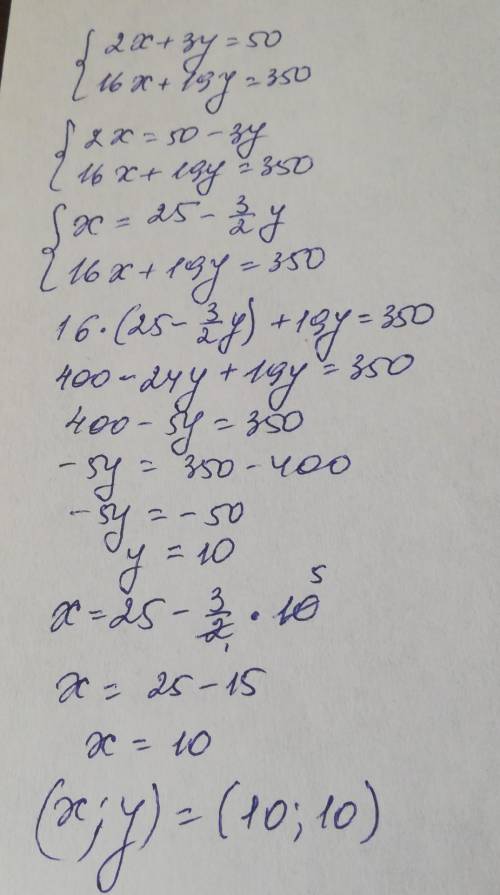 { 2x + 3y = 50
16x + 19y = 350
{ 2x = 50 - 3y
16x + 19y = 350
{ x = 25 - 3/2 y
16x + 19y = 350
16 · (25 - 3/2 y) + 19y = 350
400 - 24y + 19y = 350
400 - 5y = 350
-5y = 350 - 400
-5y = -50
y = 10
x = 25 - 3/2 · 10 5
x = 25 - 15
x = 10
(x; y) = (10; 10)